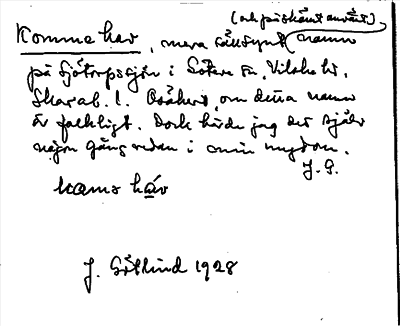 (och på skämt använt)
Komme hav, mera sällsynt namn
på Sjötorpssjön i Sätra sn, Vilske hd.
Skarab. l. Osäkert, om detta namn
är folkligt. Dock hörde jag det själv
någon gång redan i min ungdom.
J. G.
J. Götlind 1928